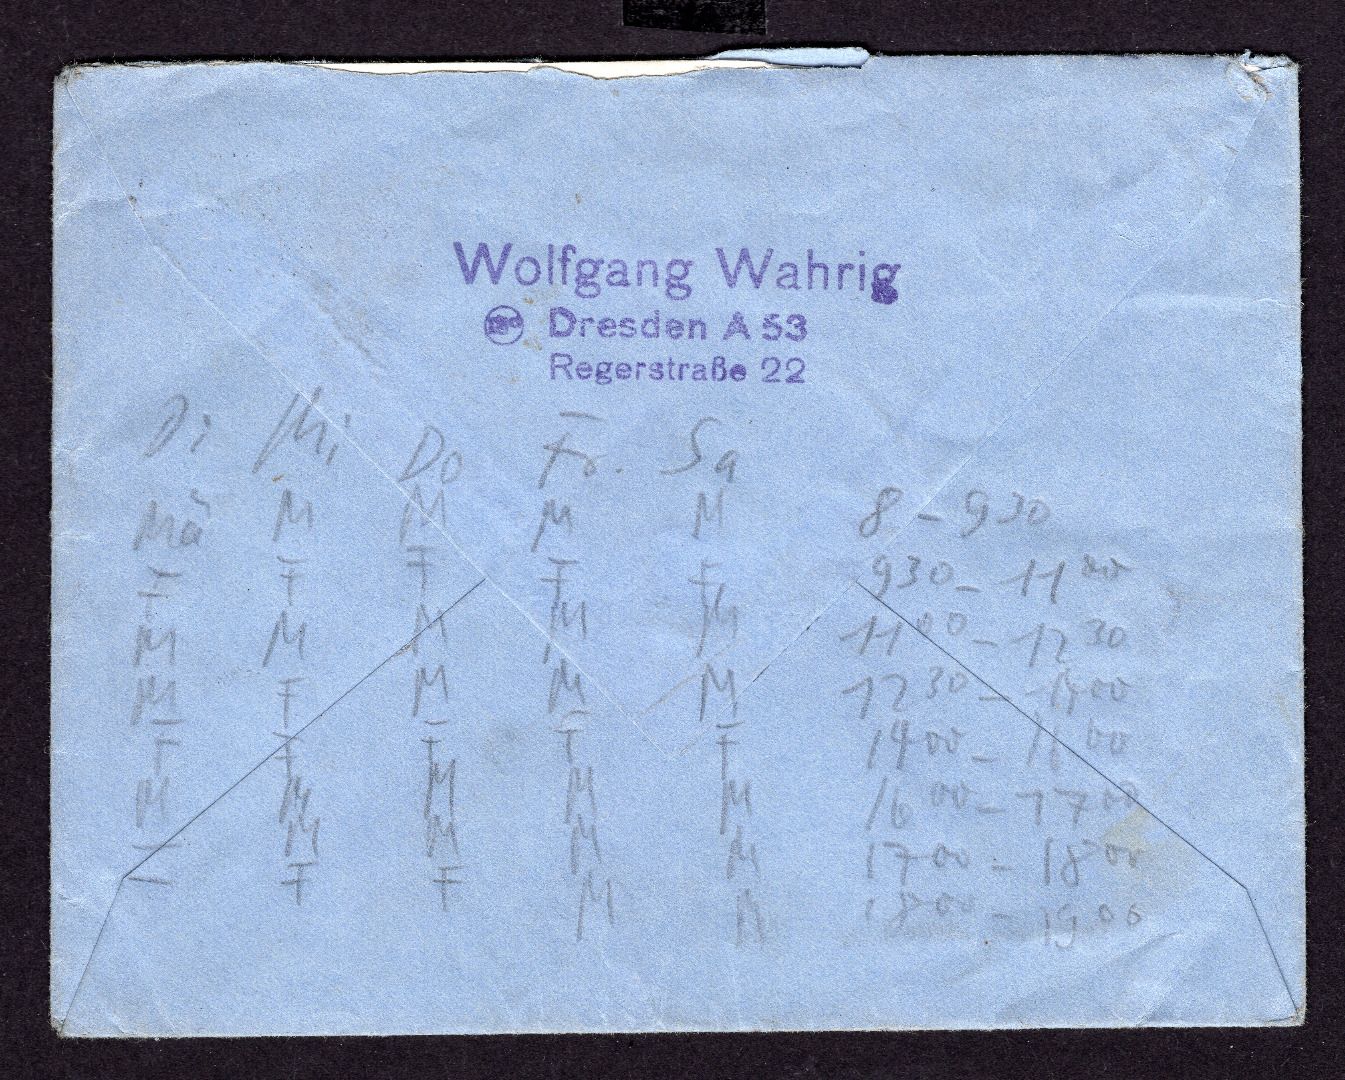 Wolfgang Wahrig
Dresden A 53
Regerstraße 22
Di Mi Do Fr. Sa
Mä M M M M 8 - 9 30
F F F F F 9 30 - 11 00
M M M M M 11 00 - 12 30
M F M M M 12 30 - 14 00
F F F F F 14 00 -
M M M M M 16 00 - 17 00
F M M M M 17 00 - 18 00
F F M M 18 00 - 19 00